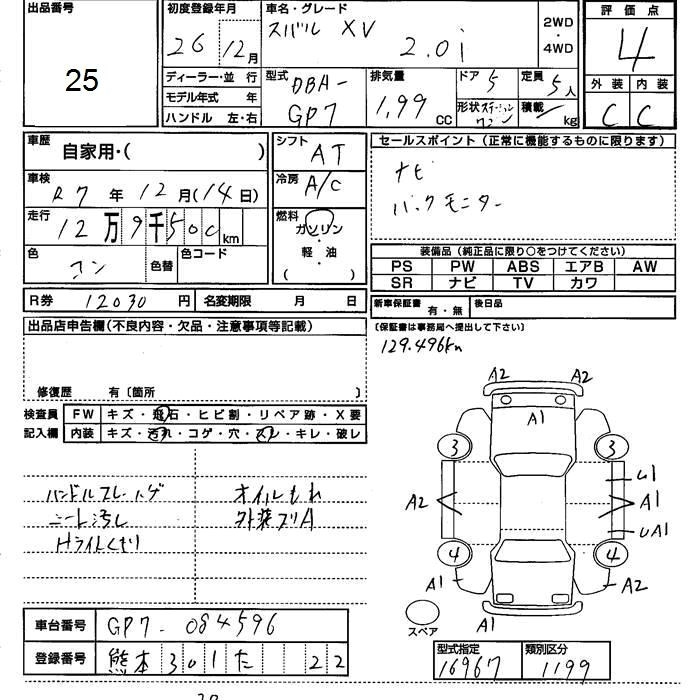 出品番号
25
初度登録年月
26年 12月
車名・グレード
スバル XV
2.0i
2WD
・
4WD
評価点
4
外装 内装
C C
ディーラー・並 行
モデル年式 年
ハンドル 左・右
型式
DBA-
GP7
排気量
1,99 CC
ドア 5
形状 ステーションワゴン
定員 5人
積載 kg
車歴
自家用・( )
車検
R7年 12月(14日)
走行
12万9千500km
色
色替
色コード
シフト
AT
冷房
A/C
燃料
ガソリン
・
軽・油
( )
セールスポイント(正常に機能するものに限ります)
ナビ
バックモニター
装備品(純正品に限り○をつけてください)
PS PW ABS エアB AW
SR ナビ TV カワ
R券 12030円
名変期限 月 日
新車保証書 有・無
後日品
(保証書は事務局へ提出して下さい)
129.496km
出品店申告欄(不良内容・欠品・注意事項等記載)
修復歴 有〔箇所 〕
検査員
記入欄
FW キズ・飛石・ヒビ割・リペア跡・X要
内装 キズ・汚れ・コゲ・穴・スレ・キレ・破レ
ハンドルスレ・ハゲ
シート汚レ
Hライトくもり
オイルもれ
外装コスリA
A2 A2
A1
3 3
A2
U1
A1
UA1
4 4
A1
A2
スペア
A1
車台番号 GP7-084596
登録番号 熊本 301 た 22
型式指定
16967
類別区分
1199